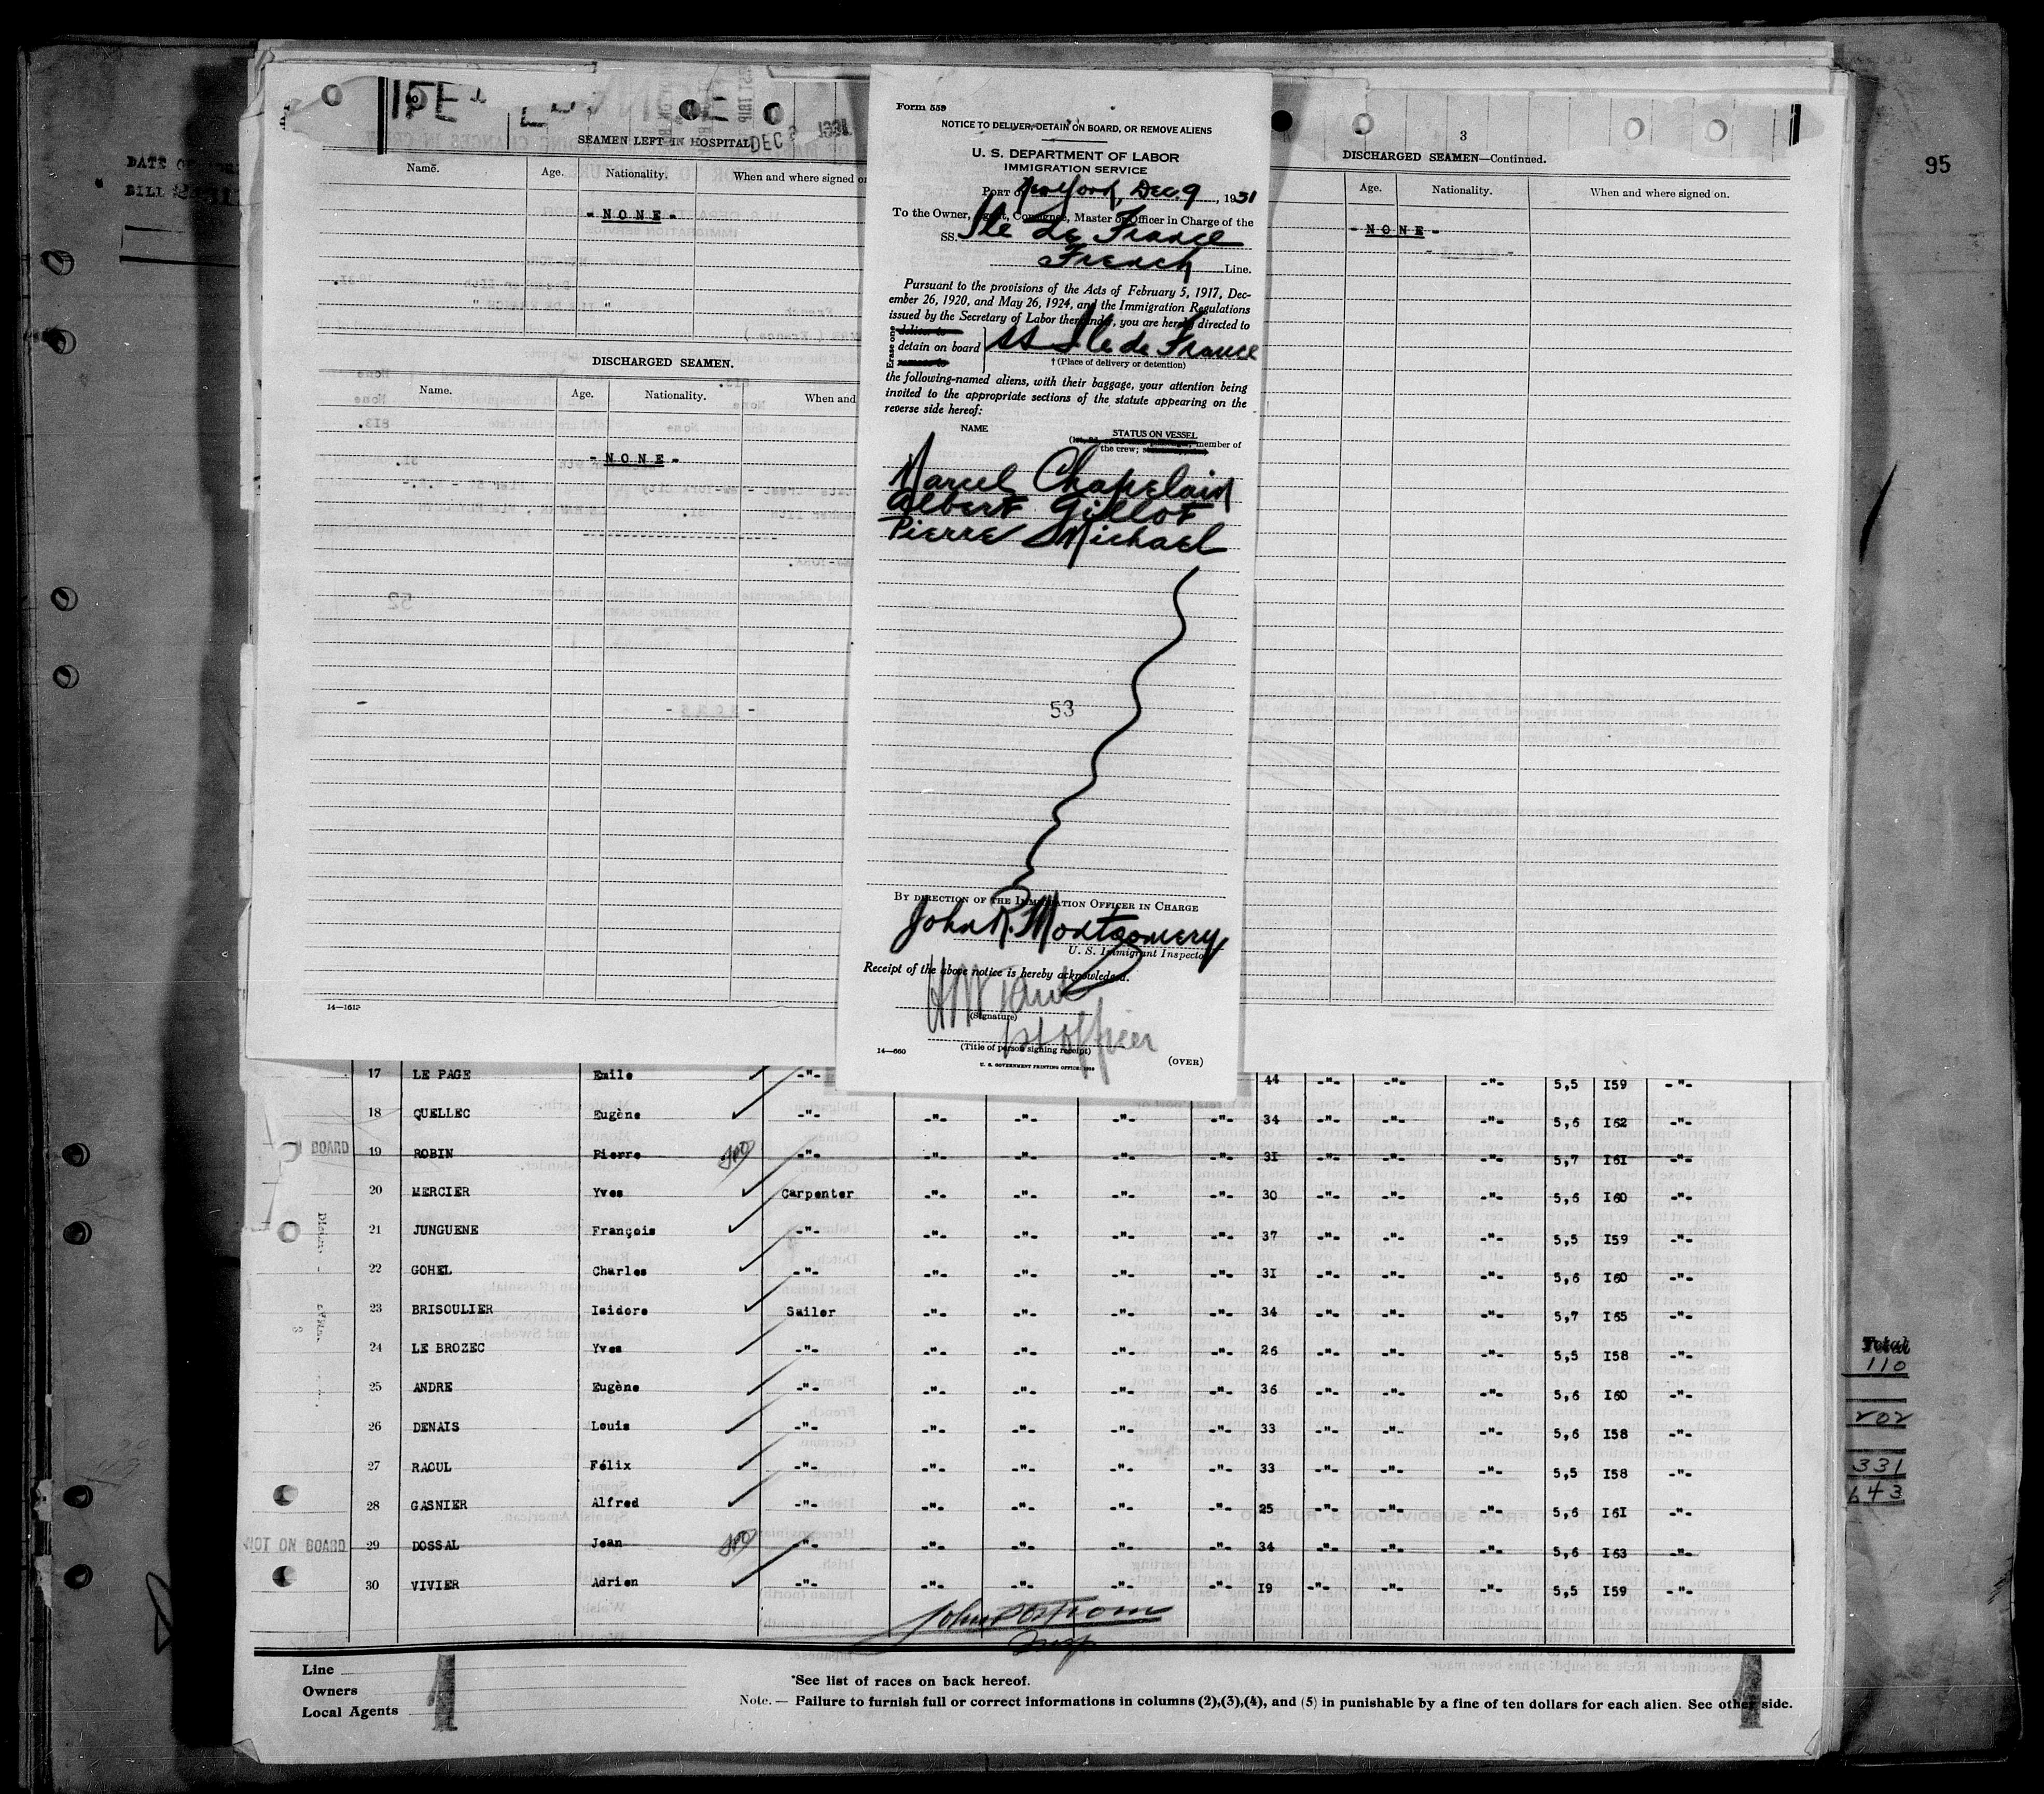 DEC 9 1931
SEAMEN LEFT IN HOSPITAL
Name. Age. Nationality. When and where signed
- N O N E -
DISCHARGED SEAMEN.
Name. Age. Nationality. When and
- N O N E -
14—161
Form 559
NOTICE TO DELIVER, DETAIN ON BOARD, OR REMOVE ALIENS
U. S. DEPARTMENT OF LABOR
IMMIGRATION SERVICE
PORT of New York, Dec. 9, 1931
To the Owner, Agent, Consignee, Master or Officer in Charge of the
SS. Ile de France
French Line.
Pursuant to the provisions of the Acts of February 5, 1917, Dec-
ember 26, 1920, and May 26, 1924, and the Immigration Regulations
issued by the Secretary of Labor thereunder, you are hereby directed to
Erase one
deliver to
detain on board SS Ile de France
remove to
† (Place of delivery or detention)
the following-named aliens, with their baggage, your attention being
invited to the appropriate sections of the statute appearing on the
reverse side hereof:
NAME STATUS ON VESSEL
member of
the crew;
Marcel Chapelain
Albert Gillot
Pierre Michael
53
BY DIRECTION OF THE IMMIGRATION OFFICER IN CHARGE
John R. Montgomery
U. S. Immigrant Inspector
Receipt of the above notice is hereby acknowledged.
(Signature)
1st officer
(Title of person signing receipt)
14—660 (OVER)
U. S. GOVERNMENT PRINTING OFFICE:
3
DISCHARGED SEAMEN—Continued.
Age. Nationality. When and where signed on.
- N O N E -
95
17 LE PAGE Emile -"- 44 -"- -"- -"- 5,5 I59 -"-
18 QUELLEC Eugène -"- -"- -"- -"- -"- 34 -"- -"- -"- 5,6 I62 -"-
BOARD 19 ROBIN Pierre -"- -"- -"- -"- -"- 3I -"- -"- -"- 5,7 I6I -"-
20 MERCIER Yves Carpenter -"- -"- -"- -"- 30 -"- -"- -"- 5,6 I60 -"-
21 JUNGUENE François -"- -"- -"- -"- -"- 37 -"- -"- -"- 5,5 I59 -"-
22 GOHEL Charles -"- -"- -"- -"- -"- 3I -"- -"- -"- 5,6 I60 -"-
23 BRISOULIER Isidore Sailor -"- -"- -"- -"- 34 -"- -"- -"- 5,7 I65 -"-
24 LE BROZEC Yves -"- -"- -"- -"- -"- 26 -"- -"- -"- 5,5 I58 -"-
25 ANDRE Eugène -"- -"- -"- -"- -"- 36 -"- -"- -"- 5,6 I60 -"-
26 DENAIS Louis -"- -"- -"- -"- -"- 33 -"- -"- -"- 5,6 I58 -"-
27 RAOUL Félix -"- -"- -"- -"- -"- 33 -"- -"- -"- 5,5 I58 -"-
28 GASNIER Alfred -"- -"- -"- -"- -"- 25 -"- -"- -"- 5,6 I6I -"-
NOT ON BOARD 29 DOSSAL Jean -"- -"- -"- -"- -"- 34 -"- -"- -"- 5,6 I63 -"-
30 VIVIER Adrien -"- -"- -"- -"- -"- I9 -"- -"- -"- 5,5 I59 -"-
Insp
Total
110
202
331
643
Line
Owners
Local Agents
*See list of races on back hereof.
Note.— Failure to furnish full or correct informations in columns (2),(3),(4), and (5) in punishable by a fine of ten dollars for each alien. See other side.
1 1